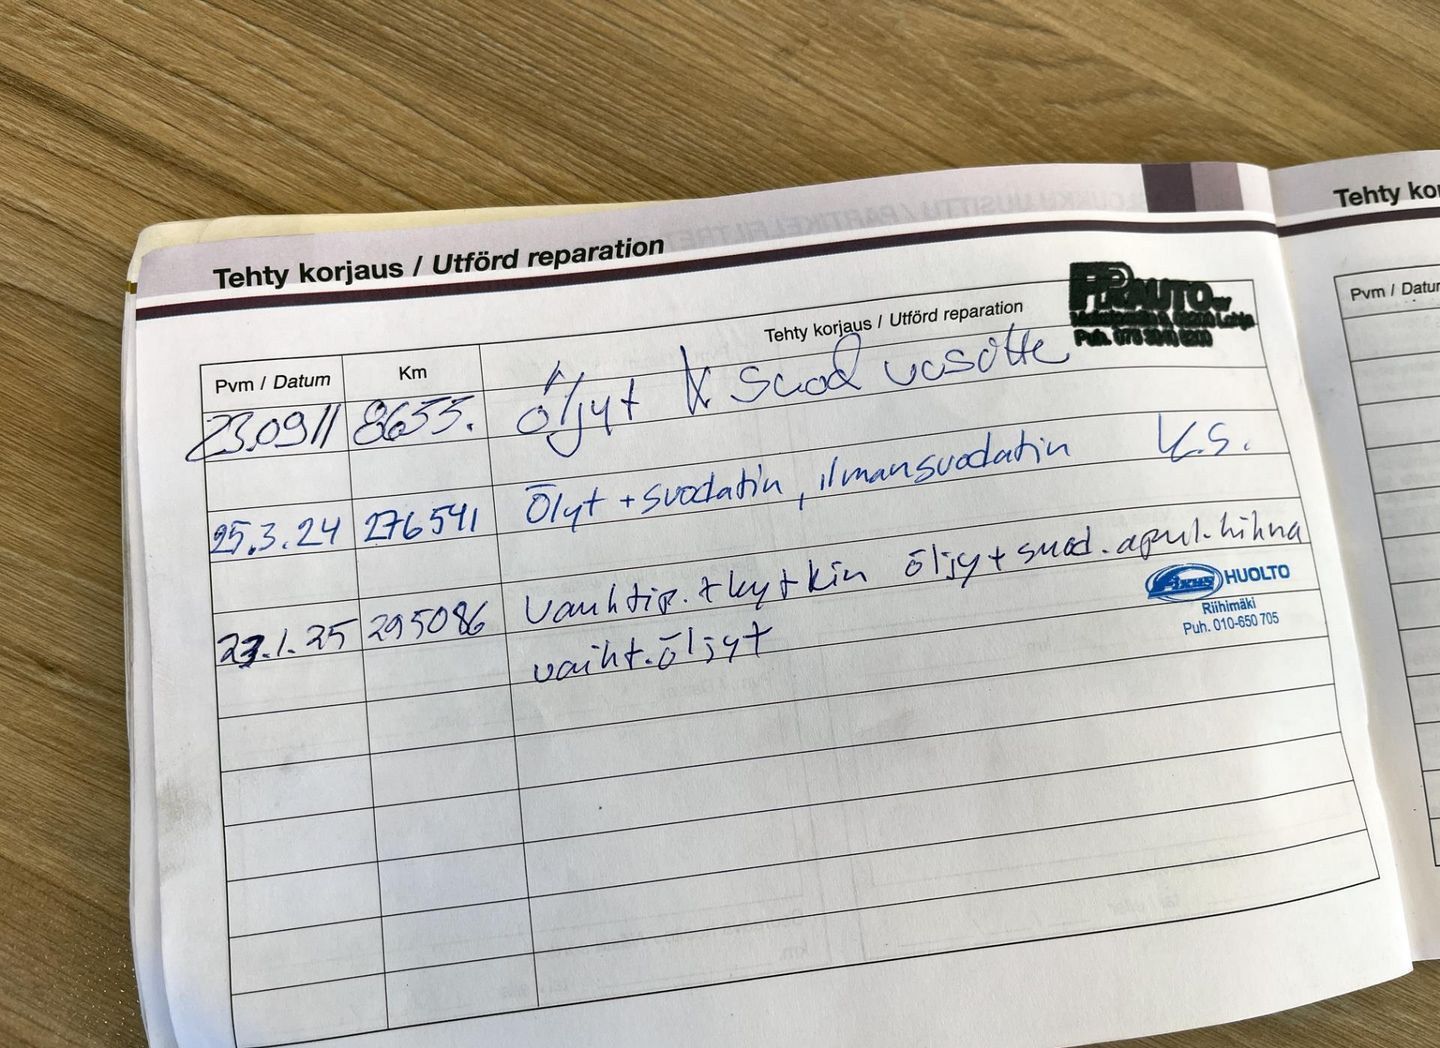 Tehty korjaus / Utförd reparation
Tehty kor
Pvm / Datum
Km
Tehty korjaus / Utförd reparation
PPRAUTO
Lohja
Puh.
Pvm / Datum
23.09 11 8655. öljyt suod
25.3.24 276541 Ölyt + suodatin, ilmansuodatin K.S.
23.1.25 295086 Vauhtip. + kytkin öljy + suod. apul. hihna
vaiht. öljyt
AXUS HUOLTO
Riihimäki
Puh. 010-650 705